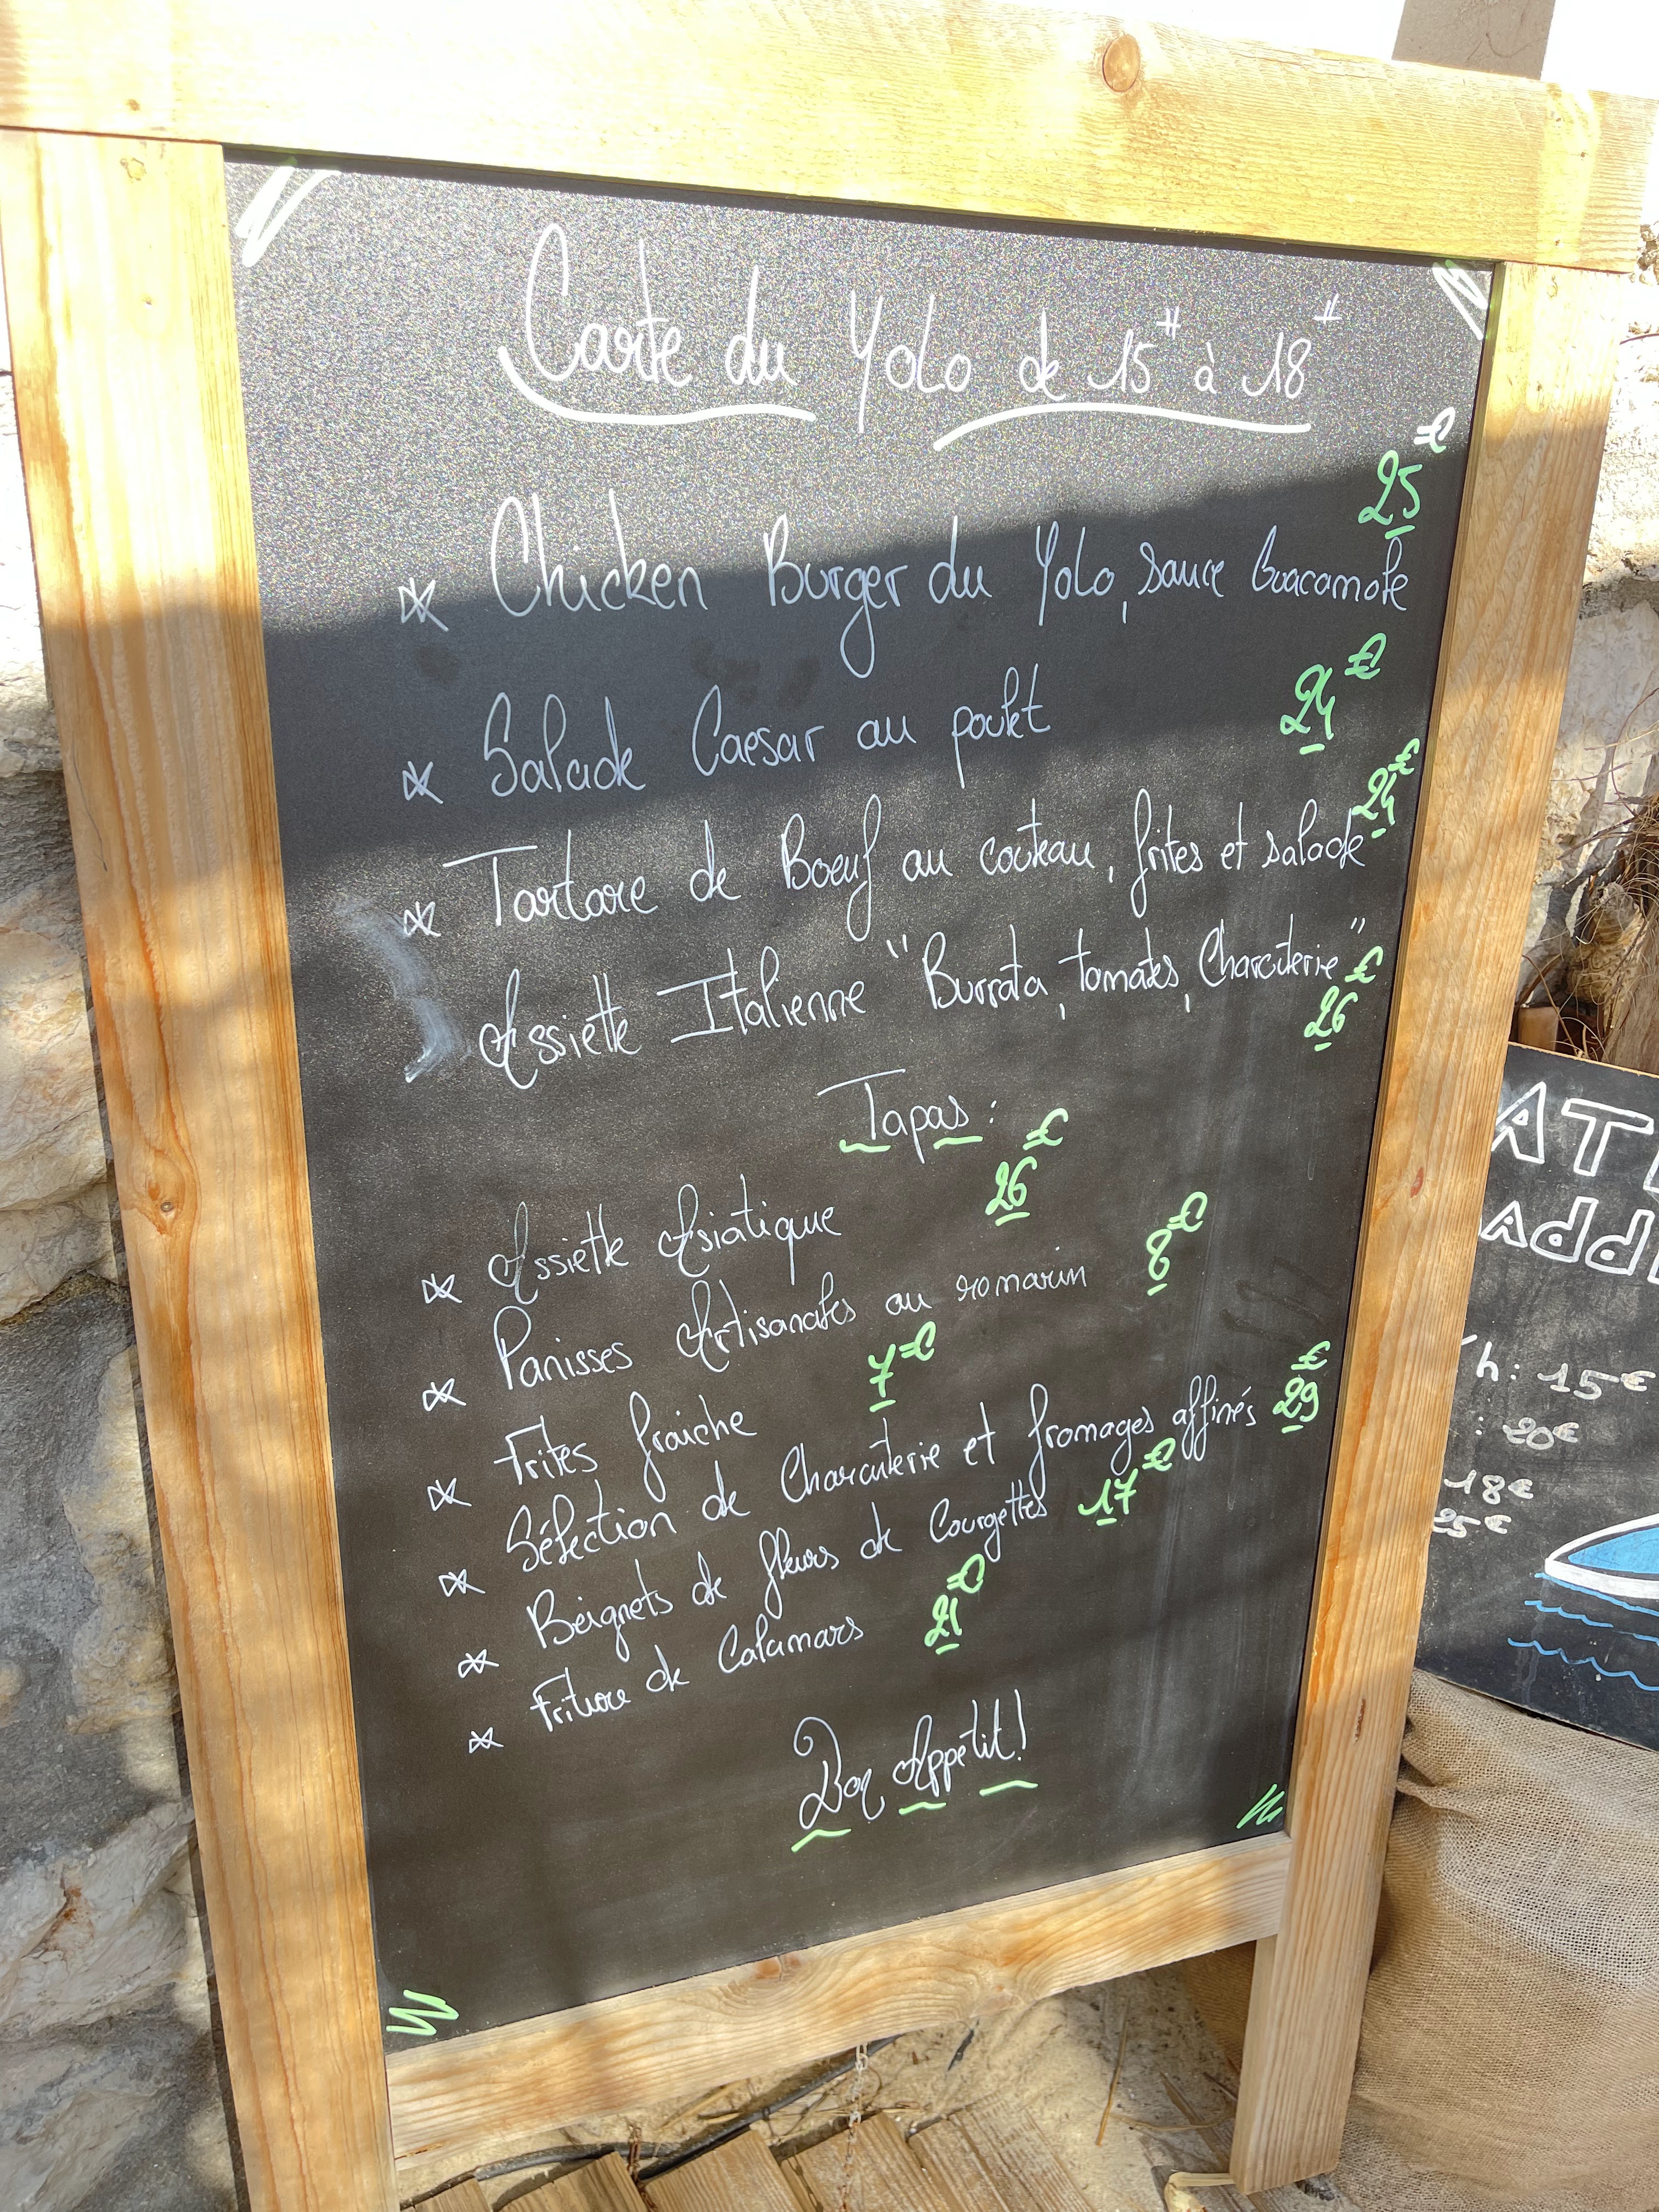 Carte du Yolo de 15H à 18H
25€
* Chicken Burger du Yolo, sauce Guacamole
* Salade Caesar au poulet 24€
* Tartare de Boeuf au couteau, frites et salade 24€
Assiette Italienne "Burrata, tomates, Charcuterie" 26€
Tapas :
* Assiette Asiatique 26€
* Panisses Artisanales au romarin 8€
* Frites fraîche 7€
* Sélection de Charcuterie et fromages affinés 29€
* Béignets de fleurs de Courgettes 17€
* Friture de Calamars 21€
Bon Appétit!
h: 15€
: 20€
18€
25€